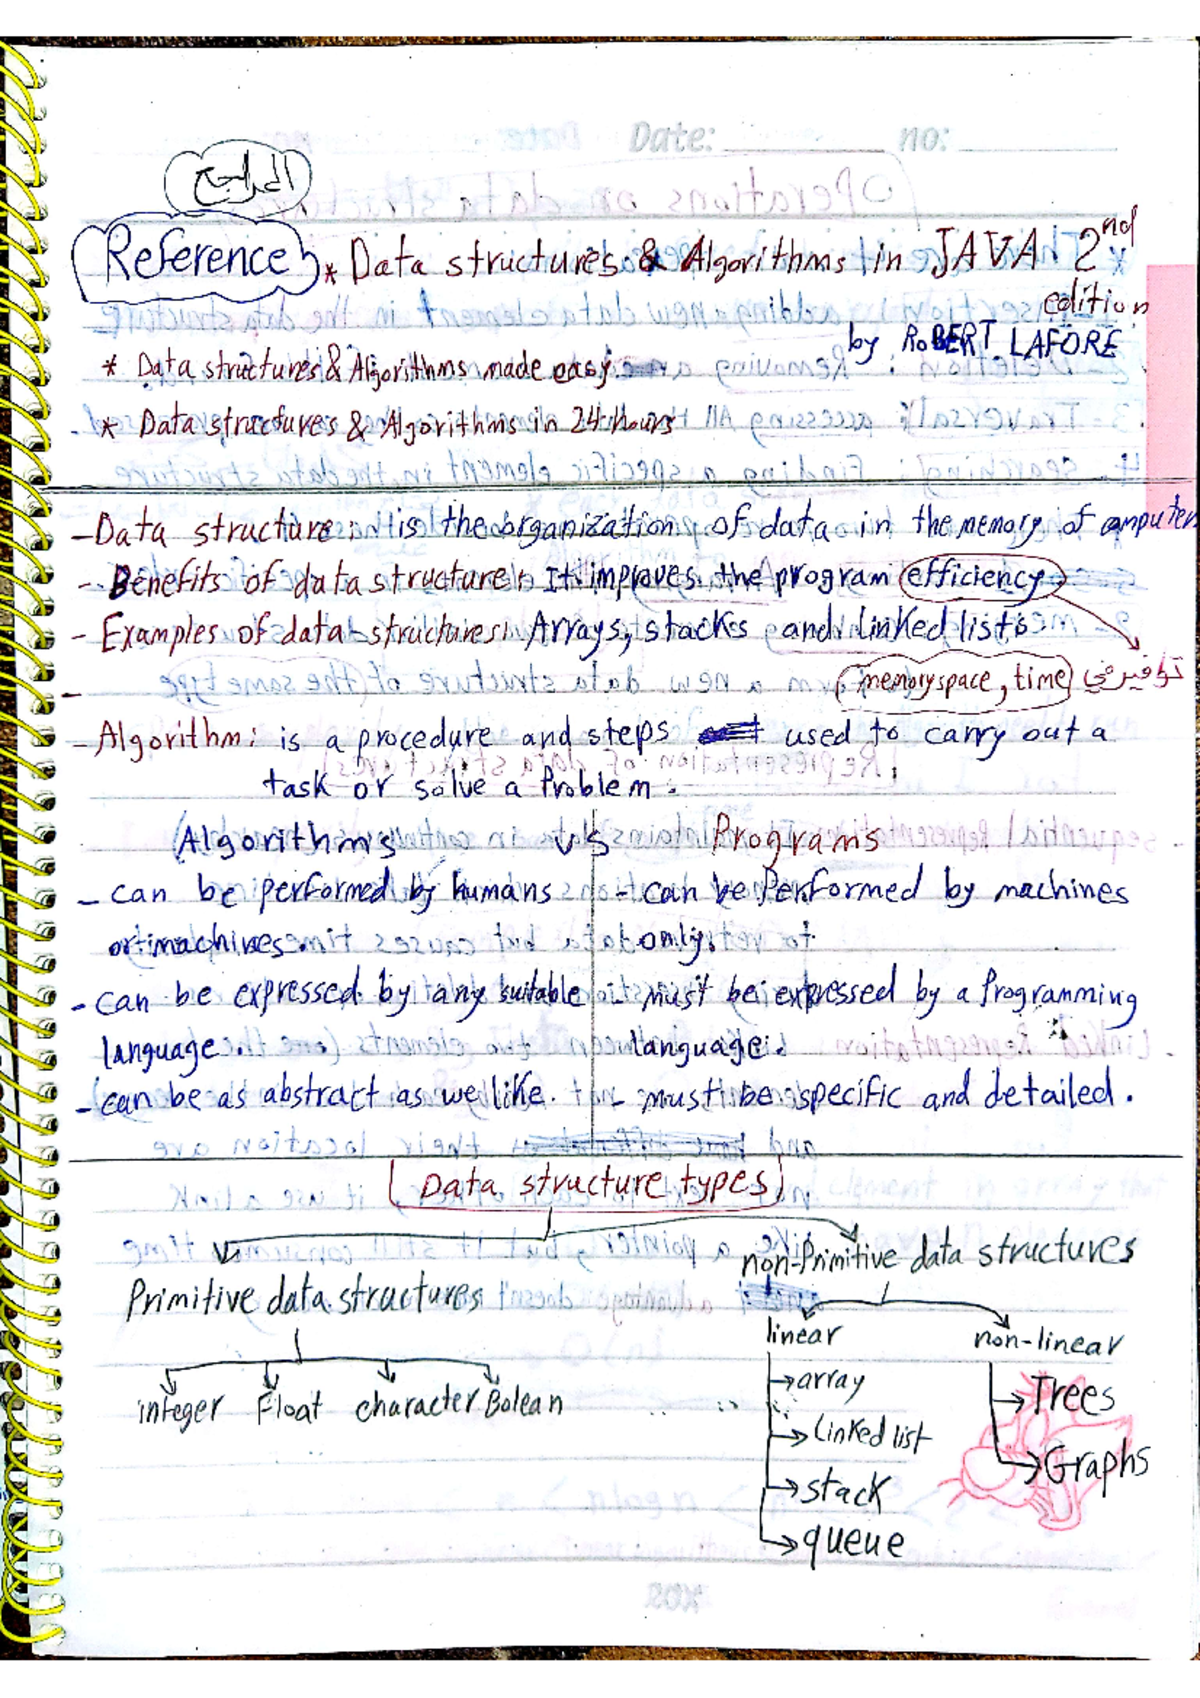 Date: no:
المراجع
Reference * Data structures & Algorithms in JAVA 2nd
edition
by RoBERT LAFORE
* Data structures & Algorithms made easy.
* Data structures & Algorithms in 24 hours
- Data structure: is the organization of data in the memory of computer
- Benefits of data structure: It improves the program efficiency
- Examples of data structures: Arrays, stacks and linked lists
(memory space, time) توفير في
- Algorithm: is a procedure and steps used to carry out a
task or solve a Problem.
Algorithms VS Programs
- can be performed by humans - can be Performed by machines
or machines. only.
- can be expressed by any suitable - must be expressed by a Programming
language. language.
- can be as abstract as we like. - must be specific and detailed.
Data structure types
Primitive data structures non-Primitive data structures
linear non-linear
integer Float character Bolean
array Trees
linked list
stack Graphs
queue